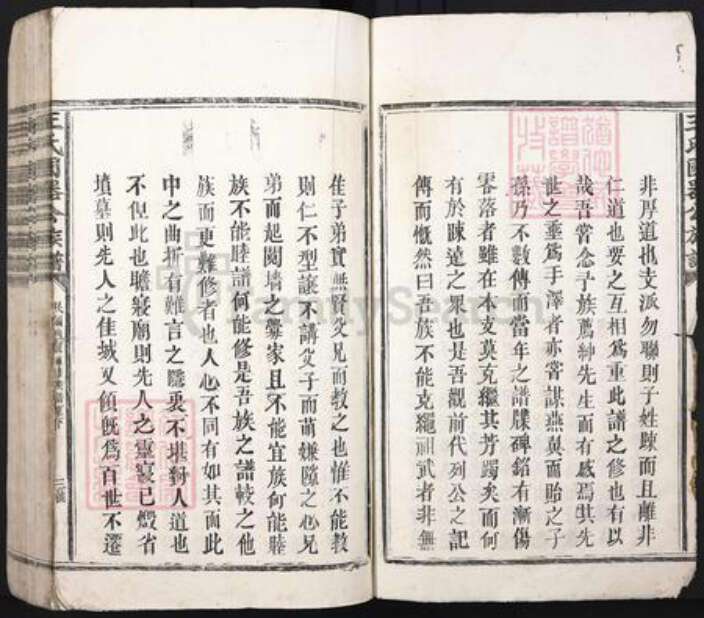 非厚道也支派勿聯則子姓踈而且離非
仁道也要之互相為重此譜之修也有以
哉吾嘗念予族薦紳先生而有感焉其先
世之垂為手澤者亦嘗謀燕翼而貽之子
孫乃不數傳而當年之譜牒碑銘有漸傷
零落者雖在本支莫克繼其芳躅矣而何
有於踈遠之眾也是吾觀前代列公之記
傳而慨然曰吾族不能克繩祖武者非無
佳子弟實無賢父兄而教之也惟不能教
則仁不型讓不講父子而萌嫌隙之心兄
弟而起鬩墻之釁家且不能宜族何能睦
族不能睦譜何能修是吾族之譜較之他
族而更難修者也人心不同有如其面此
中之曲折有難言之隱衷不堪對人道也
不但此也瞻寢廟則先人之靈寢已燬省
墳墓則先人之佳城又傾旣為百世不遷
王氏國器公族譜
三
FamilySearch